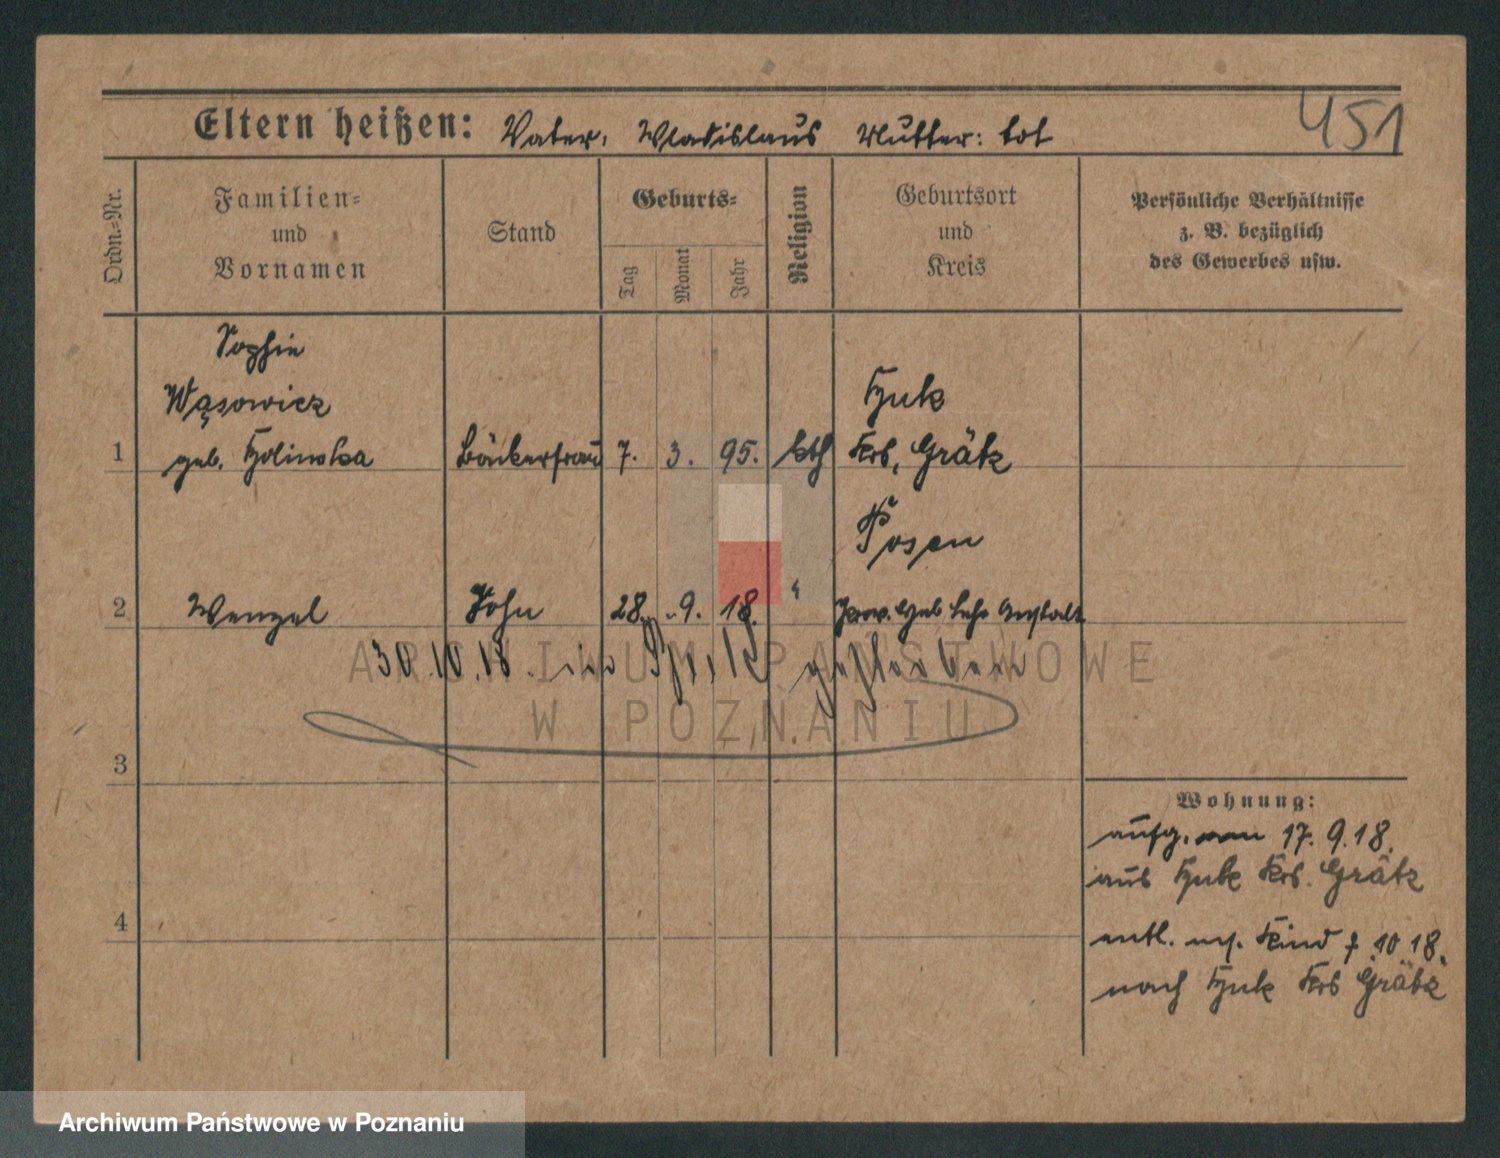 451
Eltern heißen: Vater: Wladislaus Mutter: tot
Ordn.-Nr.
Familien-
und
Vornamen
Stand
Geburts-
Tag
Monat
Jahr
Religion
Geburtsort
und
Kreis
Persönliche Verhältnisse
z. B. bezüglich
des Gewerbes usw.
Sophie
Wąsowicz
geb.
1
Bäckerfrau
7.
3.
95.
kth
Krs. Grätz
Posen
2
Wenzel
Sohn
28.
9.
18.
"
Prov. Heb Lehr Anstalt
30.10.18. ins gestorben
3
4
Wohnung:
aufg. am 17.9.18.
aus Krs. Grätz
entl. Kind 7.10.18.
nach Krs Grätz
ARCHIWUM PAŃSTWOWE
W POZNANIU
Archiwum Państwowe w Poznaniu